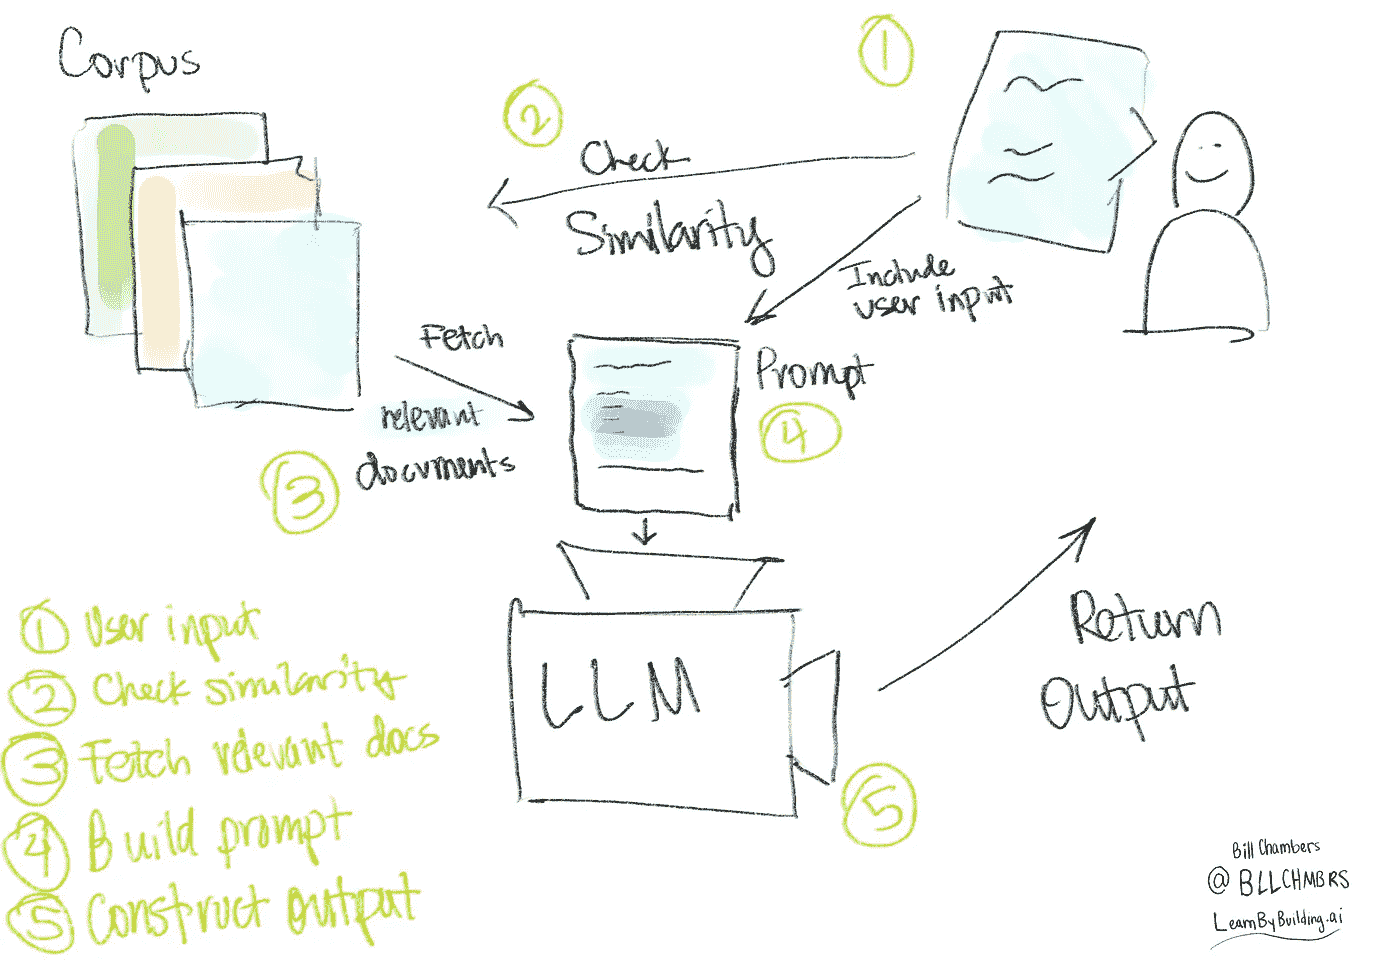 Corpus
1
2
Check
Similarity
Include
user input
Fetch
relevant
documents
3
Prompt
4
LLM
Return
Output
5
1 User input
2 Check similarity
3 Fetch relevant docs
4 Build prompt
5 Construct output
Bill Chambers
@BLLCHMBRS
LearnByBuilding.ai